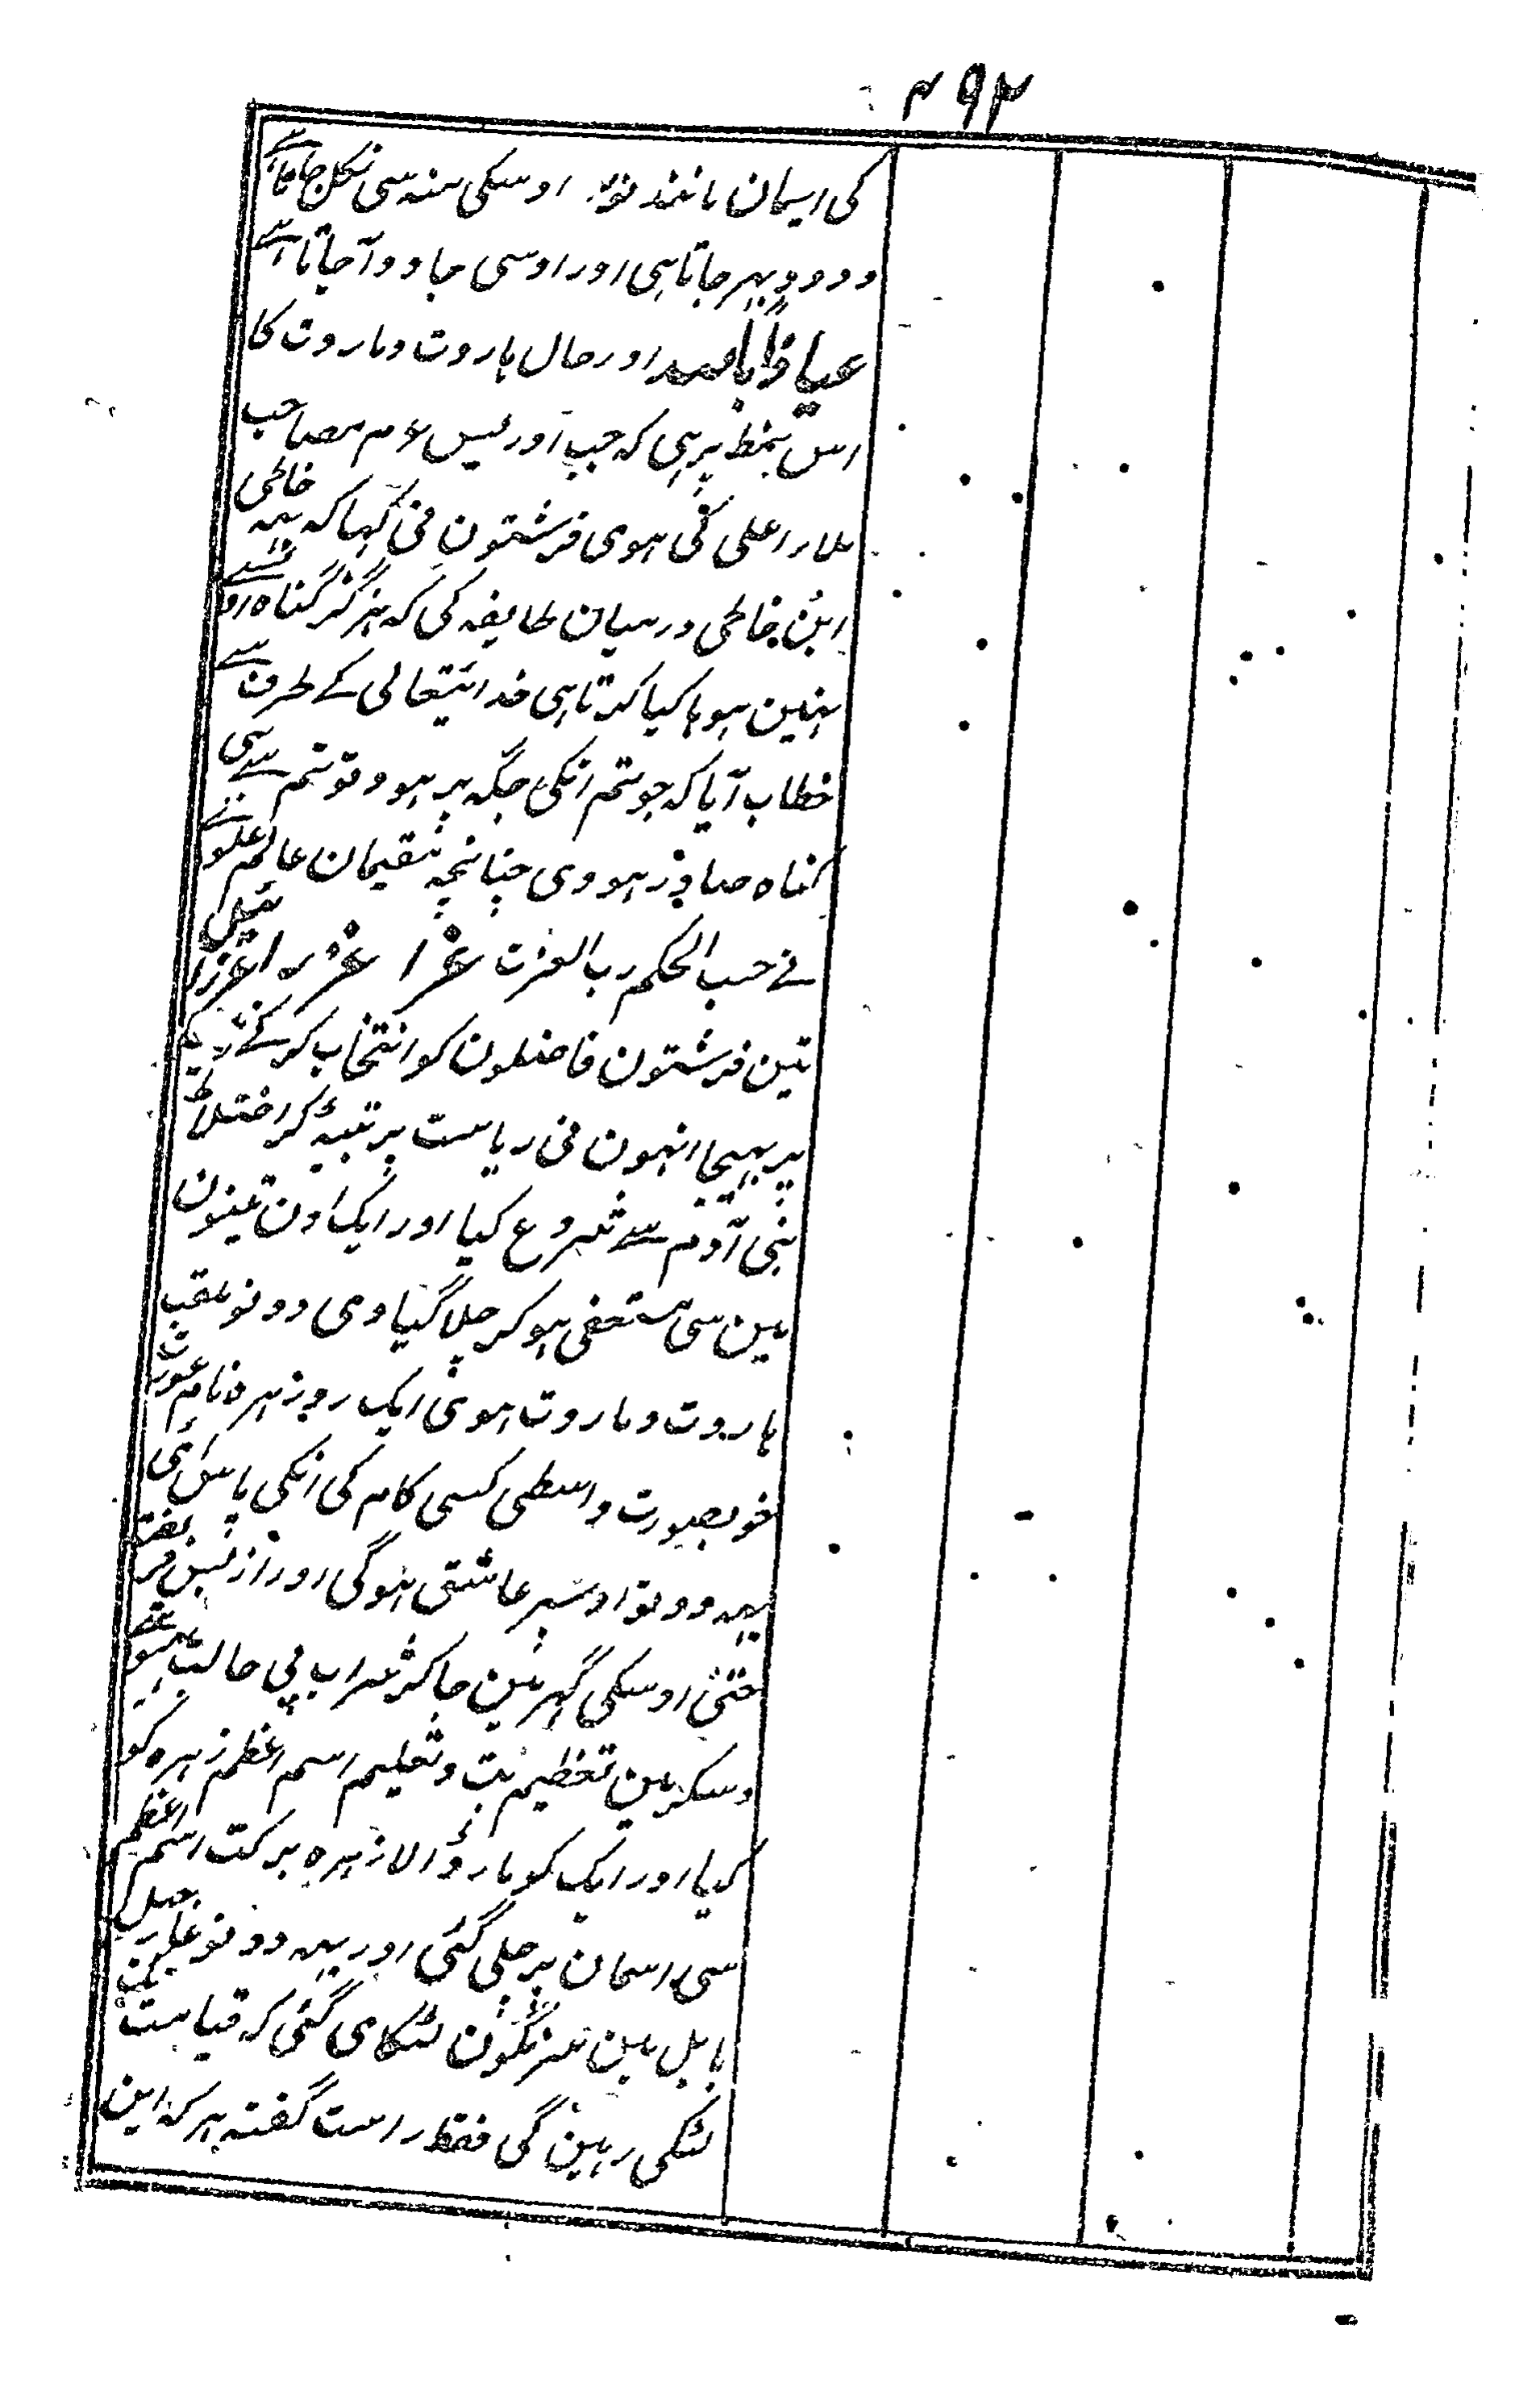 ۴۹۳
کی ایمان مانند نور اوسکی منہ سی نکل جاتا ہے
وہ بہر جاتا ہی اور اوسی جادو آجاتا ہے
عیاذاً باللہ اور حال ہاروت و ماروت کا
اس نمط پر ہی کہ جب ادریس ع م مصاحب
ملاء اعلی کی ہوی فرشتون نی کہا کہ یہہ خاطی
ابن خاطی درمیان طایفہ کی کہ ہرگز گناہ اونسے
نہین ہوا کیا کرتا ہی خدایتعالی کے طرف سے
خطاب آیا کہ جو تم انکی جگہ پر ہوو تو تم سے بہی
گناہ صادر ہووی چنانچہ مقیمان عالم علوی
نے حسب الحکم رب العزت عزا عزریا عزرائیل
تین فرشتون فاضلون کو انتخاب کر کے زمین
پر بہیجا انہون نی ریاست پر تکیہ کر اختلاط
بنی آدم سے شروع کیا اور ایک اون تینون
مین سی مستعفی ہوکر چلا گیا وی دونو ملقب
ہاروت و ماروت ہوئی ایک روز زہرہ نام عورت
خوبصورت واسطی کسی کام کی انکی پاس آئی
یہہ دونو اوسپر عاشق ہوگی اور از بس فریفتہ
حتی اوسکی گہر مین جاکر شراب پی حالت مستی
و سکر مین تعظیم بت و تعلیم اسم اعظم زہرہ کو
کیا اور ایک کو مار ڈالا زہرہ برکت اسم اعظم
سی اسمان پر چلی گئی اور یہہ دونو غار جبل
بابل مین سرنگون لٹکای گئی کہ قیامت تک
لٹکی رہین گی فقط راست گفتہ ہر کہ این